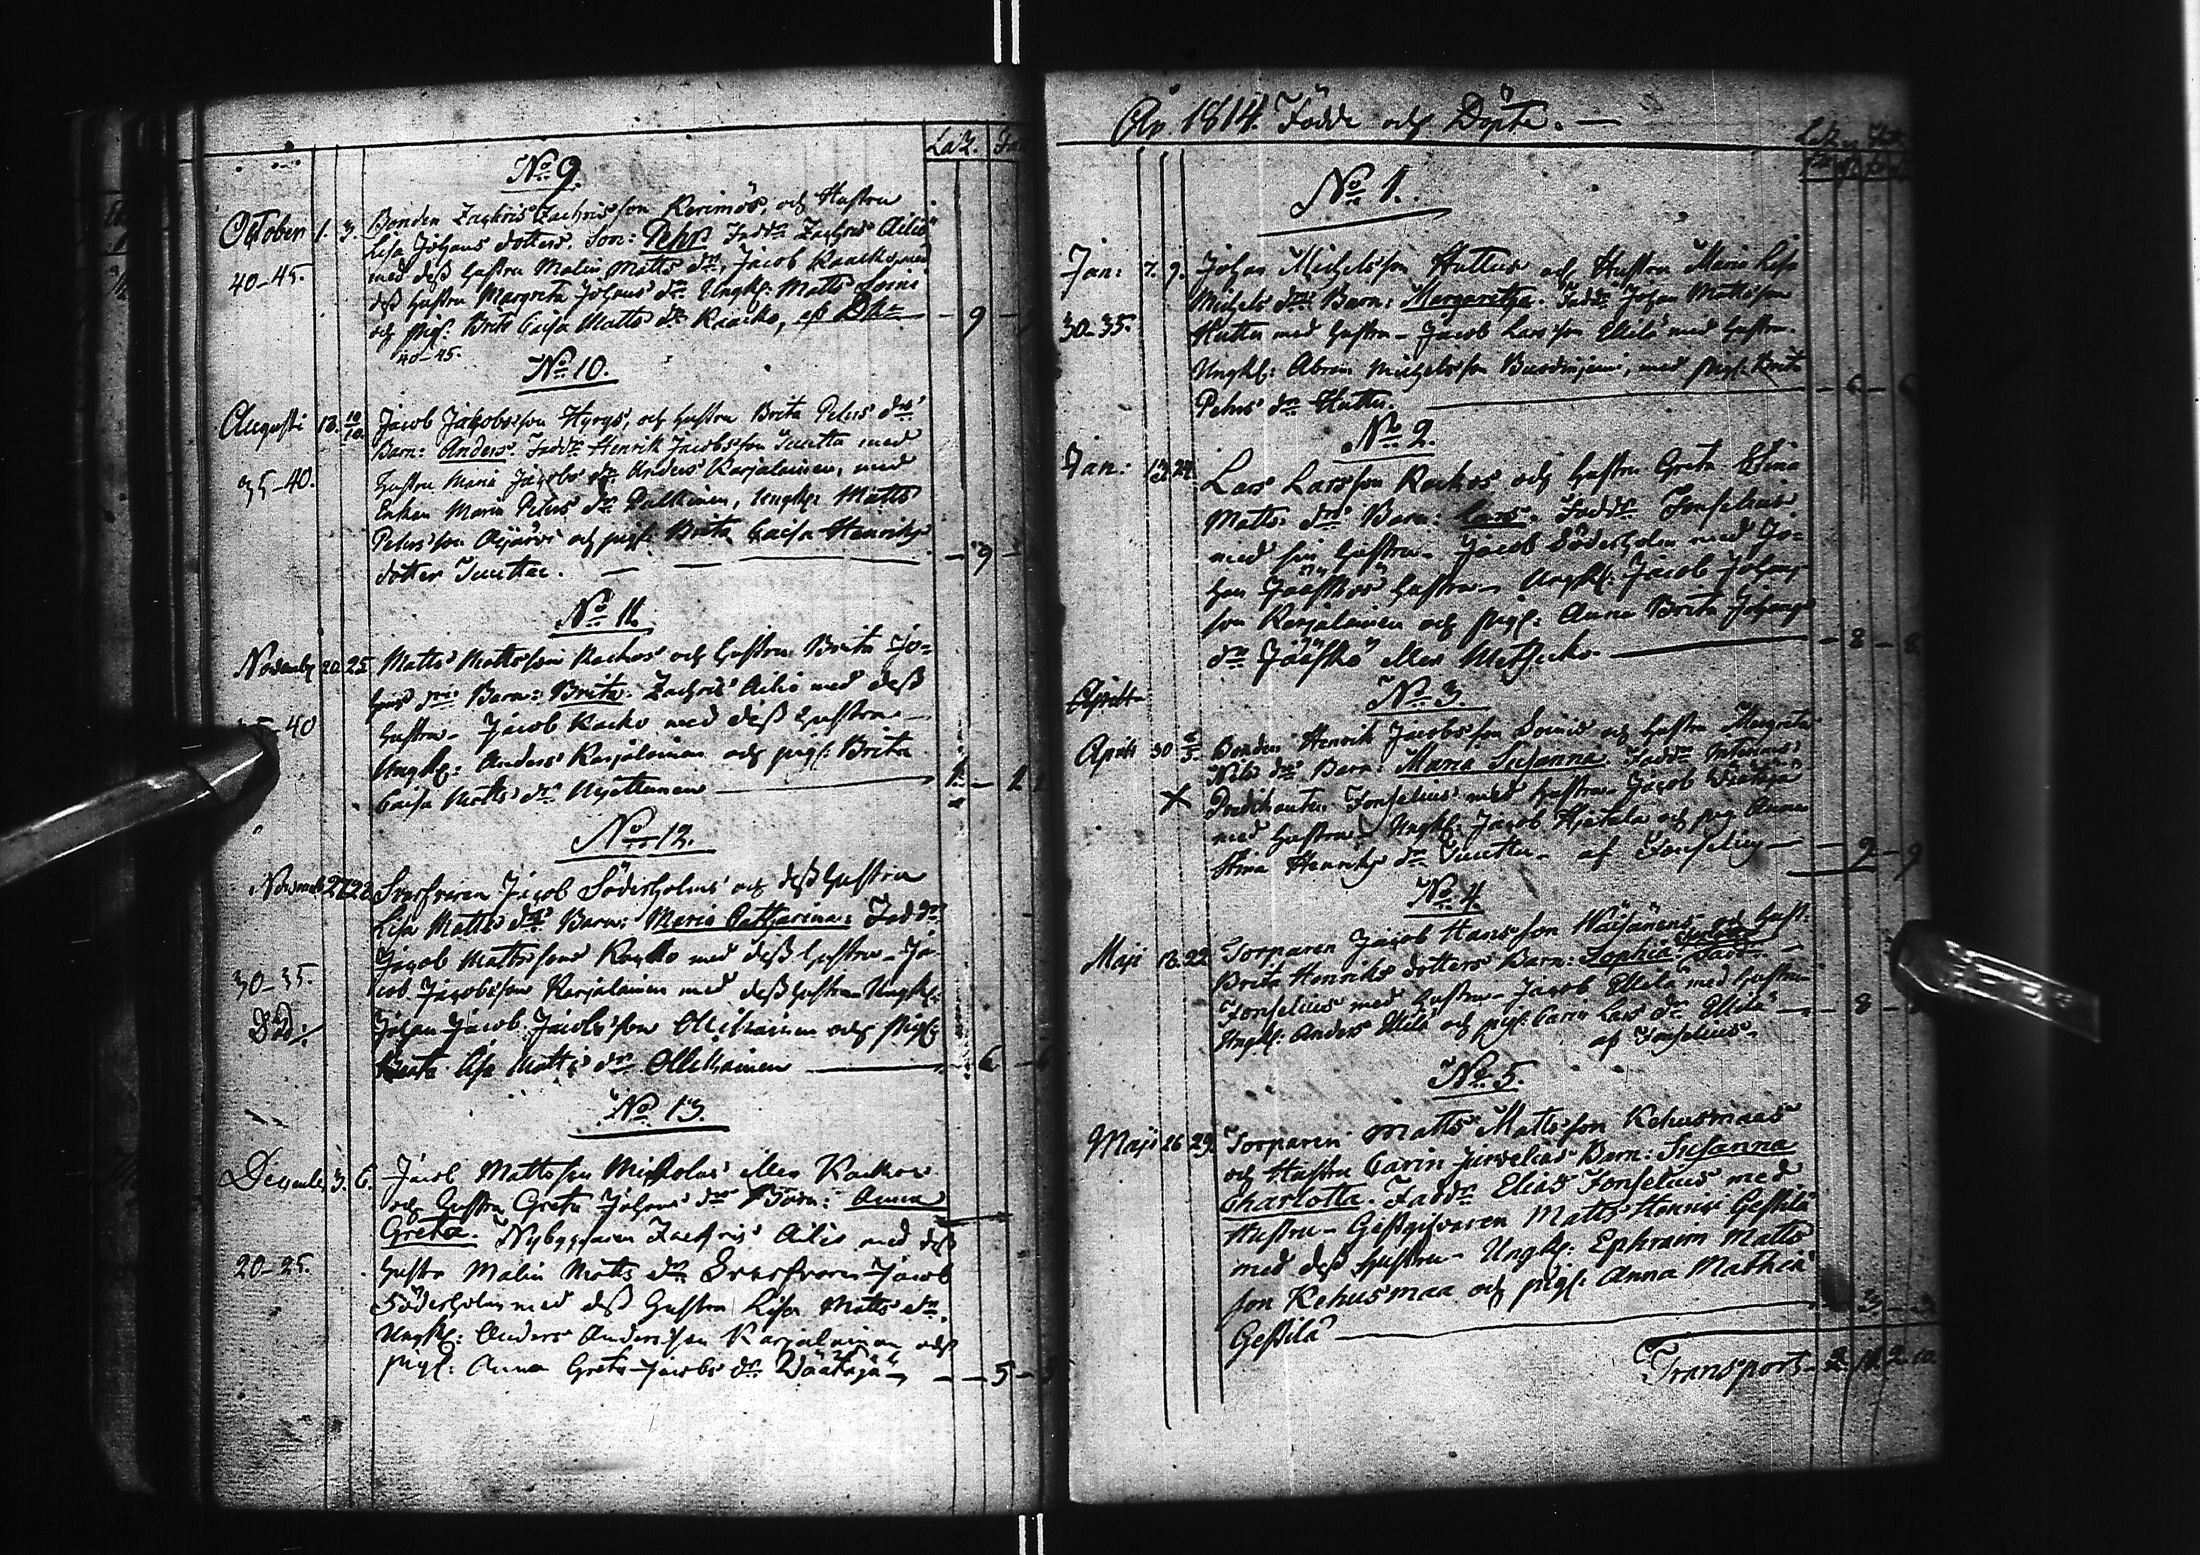 No 9.
October 1. 3. Bonden Zachris Zachrisson Kerimös, och Hustru
Lisa Johans dotters Son: Pehr Fadd: Zachris Ailio
40-45. med dess hustru Malin Matts dr, Jacob Raacko med
dess hustru Margreta Johans dr Ungk: Matts Soini
och pig: Brita Caisa Matts dr Raacko, - 9 -
40-45.
No 10.
Augusti 18. Jacob Jacobsson Hyrys, och hustru Brita Pehrs drs
Barn: Anders. Fadd: Henrik Jacobsson Juutta med
35-40. hustru Maria Jacobs dr Anders Karjalainen, med
Enkan Maria Pehrs dr Pulkinen, Ungk: Matts
Pehrsson Äijärvi och pig: Brita Caisa Henriks
dotter Juutta. - 9 -
No 11.
Novemb 20. 25. Matts Mattsson Rackos och hustru Brita Jo-
hans drs Barn: Brita. Zachris Ailio med dess
-40 hustru - Jacob Racko med dess hustru -
Ungk: Anders Karjalainen och pig: Brita
Caisa Matts dr
No 12.
Novemb 27 28 Jacob Söderholms och dess hustru
Lisa Matts drs Barn: Maria Catharina: Fadd:
Jacob Mattsson med dess hustru - Ja-
30-35. cob Jacobsson Karjalainen med dess hustru Ungk:
Johan Jacob Jacobsson Ollikainen och pig:
Lisa Matts dr Ollikainen - 6 - 6
No 13.
December 3. 6. Jacob Mattsson eller Rackos
och hustru Greta Johans drs Barn: Anna
Greta. Nybyggaren Zachris Ailio med dess
20-25. hustru Malin Matts dr Jacob
Söderholm med dess hustru Lisa Matts dr.
Ungk: Anders Andersson Karjalainen och
pig: Anna Greta Jacobs dr Wäätäjä - 5 -
År 1814. Födde och Döpte.
No 1.
Jan: 7. 9. Johan Michelsson Huttus och Hustru Maria Lisa
Michels drs Barn: Margaretha. Fadd: Johan Mattsson
30-35. Huttu med hustru - Jacob Larsson Ellilä med hustru.
Ungk: Abram Michelsson med pig: Brita
Pehrs dr Huttu. - 6 - 6
No 2.
Jan: 13. 24. Lars Larsson Rackos och hustru Greta Stina
Matts drs Barn: Lars. Fadd: Fonselius
med sin hustru - Jacob Söderholm med Jo-
han Jääskös hustru - Ungk: Jacob Johans
son Karjalainen och pig: Anna Brita Johans
dr Jääskö eller - 8 - 8
Aprill
No 3.
April 30 Bonden Henrik Jacobsson Soinis och hustru Margreta
Nils drs Barn: Maria Susanna Fadd:
Predikanten Fonselius med hustru - Jacob Wäätäjä
med hustru - Ungk: Jacob Hietala och pig Anna
Stina Henriks dr Juutta - af Fonselius - 9 - 9
No 4.
Maji 18. 22 Torparen Jacob Hansson Wäisänens och hust:
Brita Henriks dotters Barn: Sophia
Fonselius med hustru - Jacob Ellilä med hustru
Ungk: Anders Ellilä och pig: Carin Lars dr Ellilä - 8 -
af Fonselius.
No 5.
Maji 26 29. Torparen Matts Mattsson Kehusmaas
och Hustru Carin Jurvelius Barn: Susanna
Charlotta. Fadd: Elias Fonselius med
Hustru - Gästgifvaren Matts Henrici Gestilä
med dess hustru - Ungk: Ephraim Matts
son Kehusmaa och pig: Anna Mathia
Gestilä
Transport